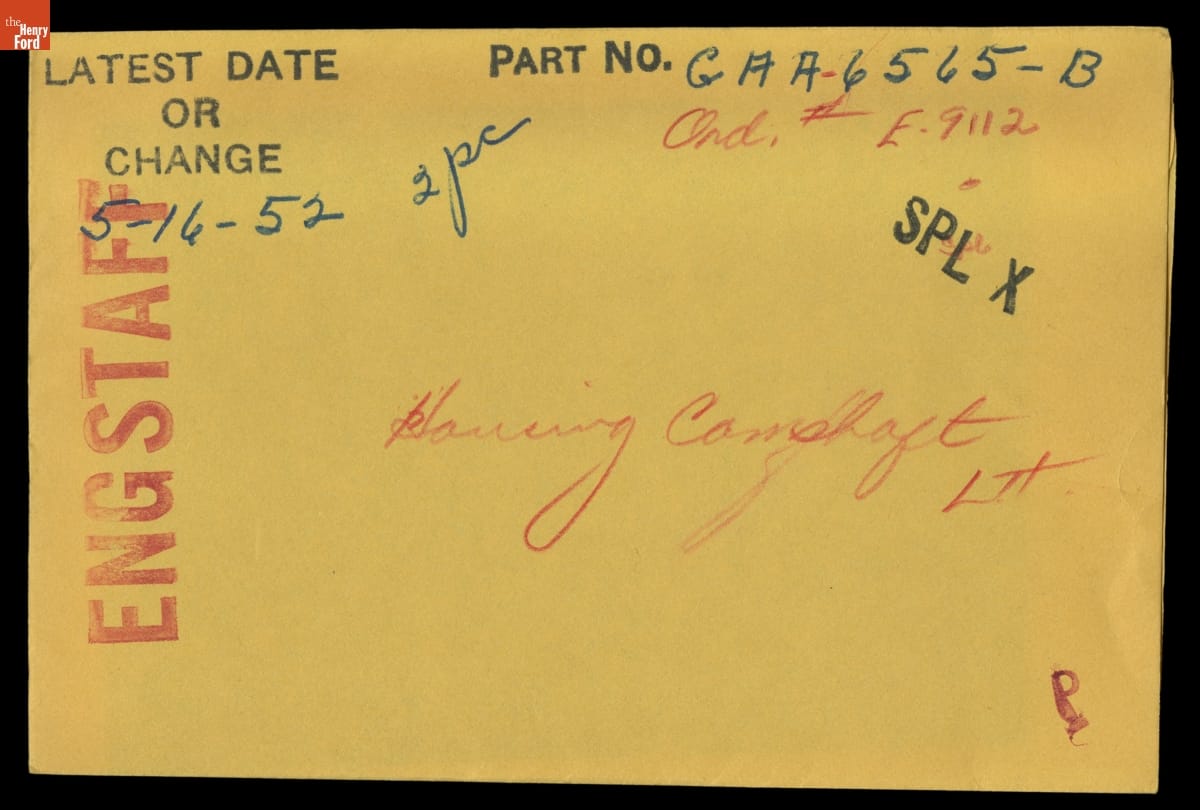 the
Henry
Ford
LATEST DATE
OR
CHANGE
5-16-52
2pc
PART NO. GAA-6565-B
Ord. # E-9112
spl
SPL X
ENGSTAFF
Housing Camshaft
LH.